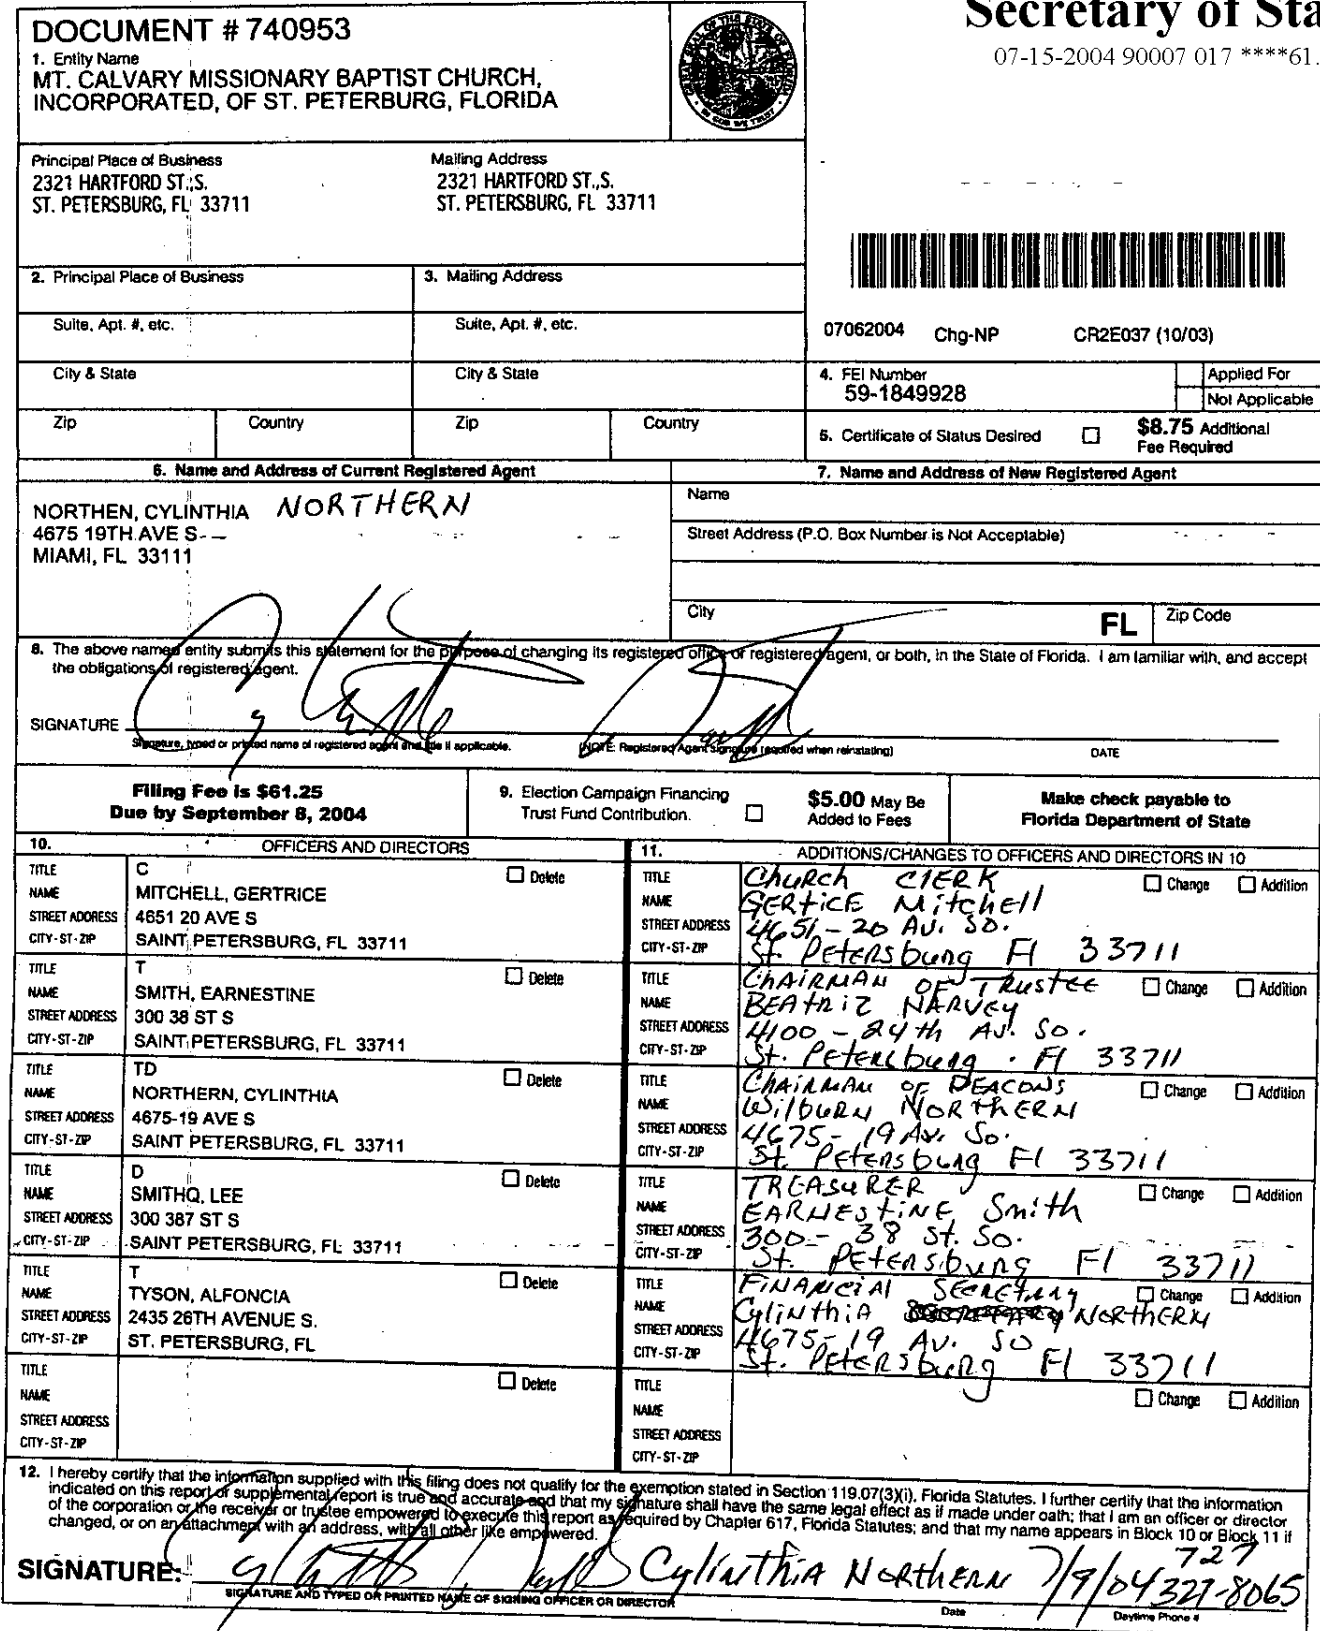 Secretary of Sta
07-15-2004 90007 017 ****61.
DOCUMENT # 740953
1. Entity Name
MT. CALVARY MISSIONARY BAPTIST CHURCH,
INCORPORATED, OF ST. PETERBURG, FLORIDA
Principal Place of Business
2321 HARTFORD ST.,S.
ST. PETERSBURG, FL 33711
Mailing Address
2321 HARTFORD ST.,S.
ST. PETERSBURG, FL 33711
2. Principal Place of Business
3. Mailing Address
Suite, Apt. #, etc.
Suite, Apt. #, etc.
City & State
City & State
Zip
Country
Zip
Country
07062004 Chg-NP CR2E037 (10/03)
4. FEI Number
59-1849928
Applied For
Not Applicable
5. Certificate of Status Desired
$8.75 Additional
Fee Required
6. Name and Address of Current Registered Agent
NORTHEN, CYLINTHIA NORTHERN
4675 19TH AVE S
MIAMI, FL 33111
7. Name and Address of New Registered Agent
Name
Street Address (P.O. Box Number is Not Acceptable)
City
FL
Zip Code
8. The above named entity submits this statement for the purpose of changing its registered office or registered agent, or both, in the State of Florida. I am familiar with, and accept
the obligations of registered agent.
SIGNATURE
Signature, typed or printed name of registered agent and title if applicable.
(NOTE: Registered Agent signature required when reinstating)
DATE
Filing Fee is $61.25
Due by September 8, 2004
9. Election Campaign Financing
Trust Fund Contribution.
$5.00 May Be
Added to Fees
Make check payable to
Florida Department of State
10. OFFICERS AND DIRECTORS
TITLE C Delete
NAME MITCHELL, GERTRICE
STREET ADDRESS 4651 20 AVE S
CITY-ST-ZIP SAINT PETERSBURG, FL 33711
TITLE T Delete
NAME SMITH, EARNESTINE
STREET ADDRESS 300 38 ST S
CITY-ST-ZIP SAINT PETERSBURG, FL 33711
TITLE TD Delete
NAME NORTHERN, CYLINTHIA
STREET ADDRESS 4675-19 AVE S
CITY-ST-ZIP SAINT PETERSBURG, FL 33711
TITLE D Delete
NAME SMITHQ, LEE
STREET ADDRESS 300 387 ST S
CITY-ST-ZIP SAINT PETERSBURG, FL 33711
TITLE T Delete
NAME TYSON, ALFONCIA
STREET ADDRESS 2435 26TH AVENUE S.
CITY-ST-ZIP ST. PETERSBURG, FL
TITLE Delete
NAME
STREET ADDRESS
CITY-ST-ZIP
11. ADDITIONS/CHANGES TO OFFICERS AND DIRECTORS IN 10
TITLE Church ClERK Change Addition
NAME GERTiCE MitchEll
STREET ADDRESS 4651-20 AV. SO.
CITY-ST-ZIP St. PETERSburg Fl 33711
TITLE ChAIRMAN OF TRustEE Change Addition
NAME BEATRiZ NARVEY
STREET ADDRESS 4100-24th AV. So.
CITY-ST-ZIP St. PETERSburg. Fl 33711
TITLE ChAIRMAN OF DEACONS Change Addition
NAME WilbURN NORThERN
STREET ADDRESS 4675-19 AV. So.
CITY-ST-ZIP St. PETERSburg Fl 33711
TITLE TREASURER Change Addition
NAME EARNESTiNE Smith
STREET ADDRESS 300-38 St. So.
CITY-ST-ZIP St. PETERSburg Fl 33711
TITLE FINANCiAl SECRETARY Change Addition
NAME CyliNthiA NORThERN
STREET ADDRESS 4675-19 AV. SO
CITY-ST-ZIP St. PETERSburg Fl 33711
TITLE Change Addition
NAME
STREET ADDRESS
CITY-ST-ZIP
12. I hereby certify that the information supplied with this filing does not qualify for the exemption stated in Section 119.07(3)(i), Florida Statutes. I further certify that the information
indicated on this report or supplemental report is true and accurate and that my signature shall have the same legal effect as if made under oath; that I am an officer or director
of the corporation or the receiver or trustee empowered to execute this report as required by Chapter 617, Florida Statutes; and that my name appears in Block 10 or Block 11 if
changed, or on an attachment with an address, with all other like empowered.
SIGNATURE: CyliNthiA NORThERN 7/9/04 727 327-8065
SIGNATURE AND TYPED OR PRINTED NAME OF SIGNING OFFICER OR DIRECTOR
Date
Daytime Phone #